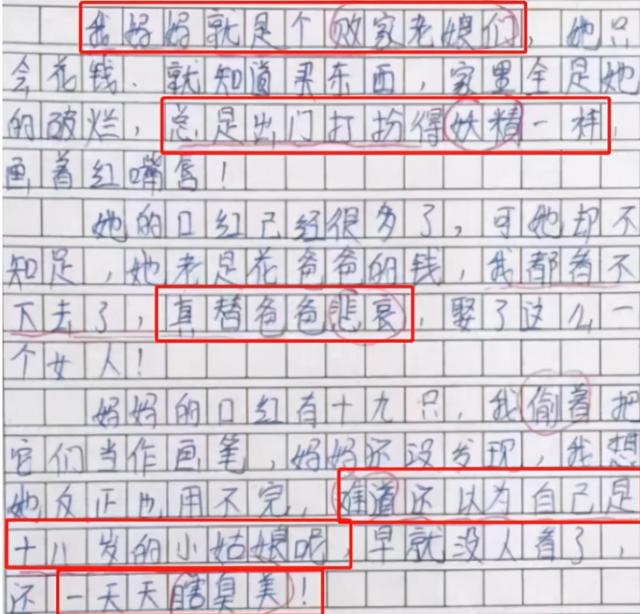 我妈妈就是个败家老娘们,她只
会花钱.就知道买东西,家里全是她
的破烂,总是出门打扮得妖精一样,
画着红嘴唇!
她的口红已经很多了,可她却不
知足,她老是花爸爸的钱,我都看不
下去了,真替爸爸悲哀,娶了这么一
个女人!
妈妈的口红有十九只,我偷着把
它们当作画笔,妈妈还没发现,我想
她反正也用不完,难道还以为自己是
十八岁的小姑娘呢,早就没人看了,
还一天天瞎臭美!